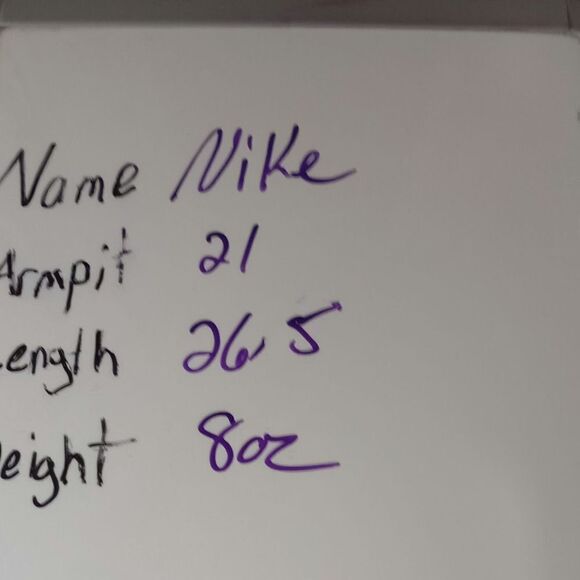 Name Nike
Armpit 21
Length 26.5
Weight 8oz